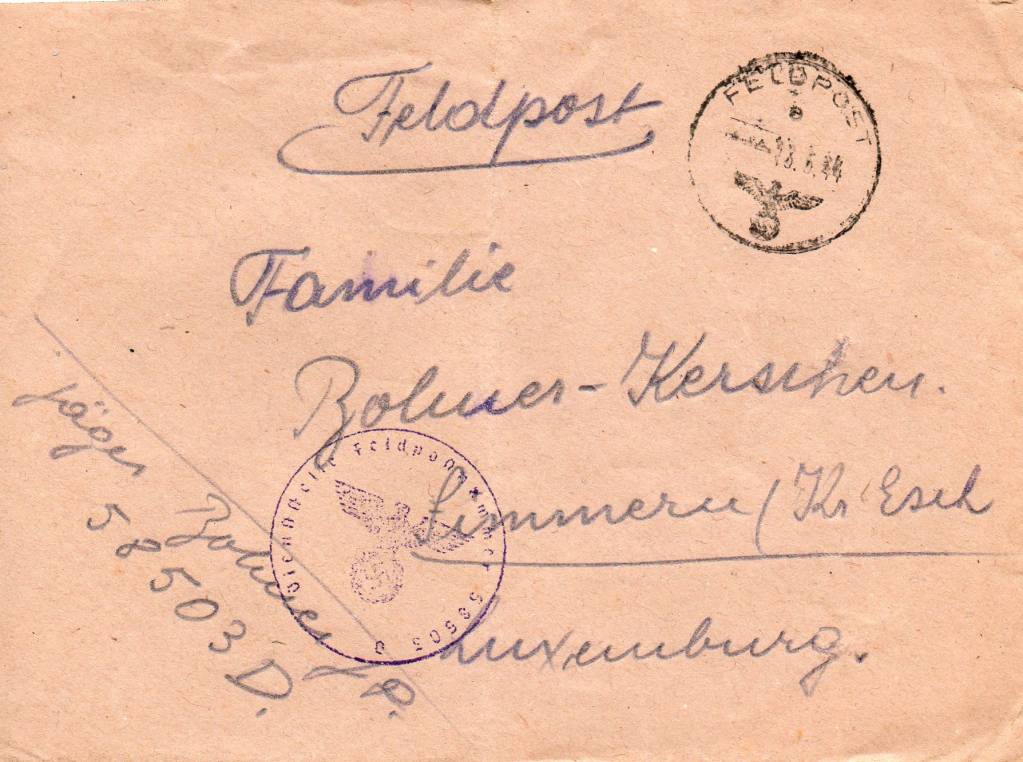 Feldpost
FELDPOST
b
13.6.44
Familie
Bohmer-Kerschen.
Simmern/Kr Esch
Luxemburg.
Jäger
58503 D.
Dienststelle Feldpostnummer 58503 D